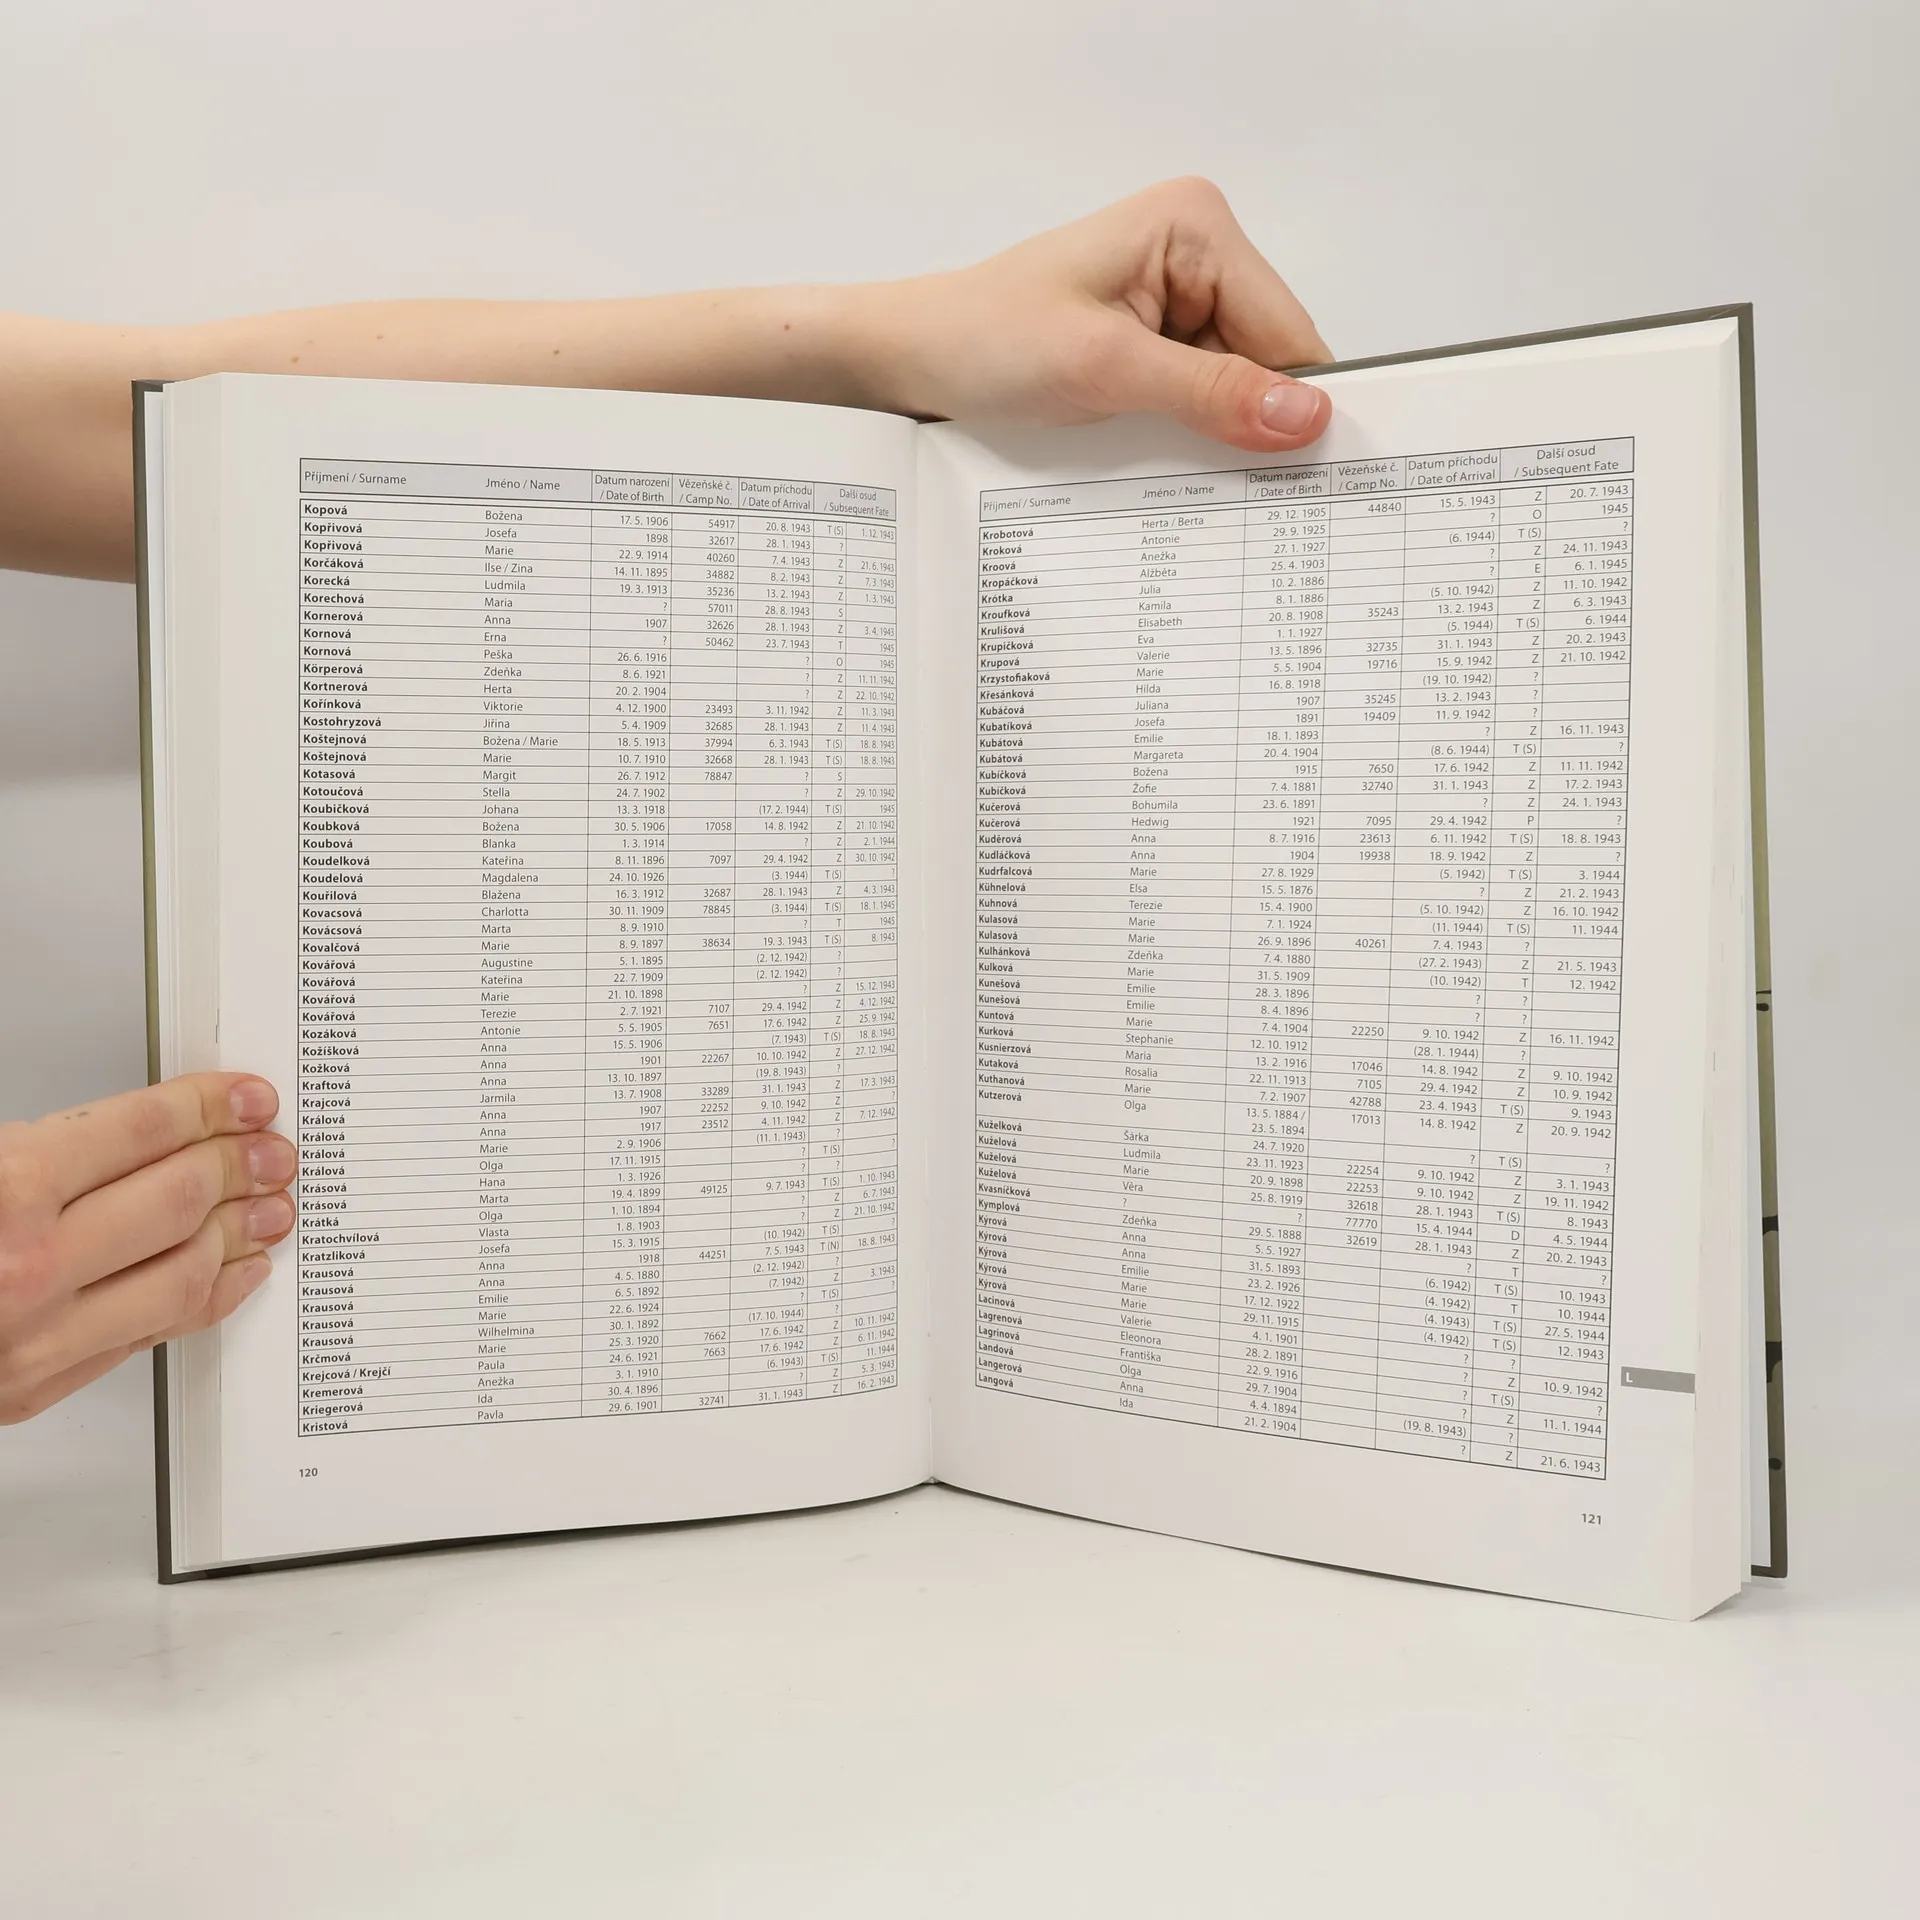 Příjmení / Surname Jméno / Name Datum narození / Date of Birth Vězeňské č. / Camp No. Datum příchodu / Date of Arrival Další osud / Subsequent Fate
Kopová Božena 17. 5. 1906 54917 20. 8. 1943 T (S) 1. 12. 1943
Kopřivová Josefa 1898 32617 28. 1. 1943 ?
Kopřivová Marie 22. 9. 1914 40260 7. 4. 1943 Z 21. 6. 1943
Korčáková Ilse / Zina 14. 11. 1895 34882 8. 2. 1943 Z 7. 3. 1943
Korecká Ludmila 19. 3. 1913 35236 13. 2. 1943 Z 1. 3. 1943
Korechová Maria ? 57011 28. 8. 1943 S
Kornerová Anna 1907 32626 28. 1. 1943 Z 3. 4. 1943
Kornová Erna ? 50462 23. 7. 1943 T 1945
Kornová Peška 26. 6. 1916 ? O 1945
Körperová Zdeňka 8. 6. 1921 ? Z 11. 11. 1942
Kortnerová Herta 20. 2. 1904 ? Z 22. 10. 1942
Kořínková Viktorie 4. 12. 1900 23493 3. 11. 1942 Z 11. 3. 1943
Kostohryzová Jiřina 5. 4. 1909 32685 28. 1. 1943 Z 11. 4. 1943
Koštejnová Božena / Marie 18. 5. 1913 37994 6. 3. 1943 T (S) 18. 8. 1943
Koštejnová Marie 10. 7. 1910 32668 28. 1. 1943 T (S) 18. 8. 1943
Kotasová Margit 26. 7. 1912 78847 ? S
Kotoučová Stella 24. 7. 1902 ? Z 29. 10. 1942
Koubičková Johana 13. 3. 1918 (17. 2. 1944) T (S) 1945
Koubková Božena 30. 5. 1906 17058 14. 8. 1942 Z 21. 10. 1942
Koubová Blanka 1. 3. 1914 ? Z 2. 1. 1944
Koudelková Kateřina 8. 11. 1896 7097 29. 4. 1942 Z 30. 10. 1942
Koudelová Magdalena 24. 10. 1926 (3. 1944) T (S) ?
Kouřilová Blažena 16. 3. 1912 32687 28. 1. 1943 Z 4. 3. 1943
Kovacsová Charlotta 30. 11. 1909 78845 (3. 1944) T (S) 18. 1. 1945
Kovácsová Marta 8. 9. 1910 ? T 1945
Kovalčová Marie 8. 9. 1897 38634 19. 3. 1943 T (S) 8. 1943
Kovářová Augustine 5. 1. 1895 (2. 12. 1942) ?
Kovářová Kateřina 22. 7. 1909 (2. 12. 1942) ?
Kovářová Marie 21. 10. 1898 ? Z 15. 12. 1943
Kovářová Terezie 2. 7. 1921 7107 29. 4. 1942 Z 4. 12. 1942
Kozáková Antonie 5. 5. 1905 7651 17. 6. 1942 Z 25. 9. 1942
Kožíšková Anna 15. 5. 1906 (7. 1943) T (S) 18. 8. 1943
Kožková Anna 1901 22267 10. 10. 1942 Z 27. 12. 1942
Kraftová Anna 13. 10. 1897 (19. 8. 1943) ?
Krajcová Jarmila 13. 7. 1908 33289 31. 1. 1943 Z 17. 3. 1943
Králová Anna 1907 22252 9. 10. 1942 Z ?
Králová Anna 1917 23512 4. 11. 1942 Z 7. 12. 1942
Králová Marie 2. 9. 1906 (11. 1. 1943) ?
Králová Olga 17. 11. 1915 ? T (S) ?
Krásová Hana 1. 3. 1926 ? ?
Krásová Marta 19. 4. 1899 49125 9. 7. 1943 T (S) 1. 10. 1943
Krátká Olga 1. 10. 1894 ? Z 6. 7. 1943
Kratochvílová Vlasta 1. 8. 1903 ? Z 21. 10. 1942
Kratzliková Josefa 15. 3. 1915 (10. 1942) T (S) ?
Krausová Anna 1918 44251 7. 5. 1943 T (N) 18. 8. 1943
Krausová Anna 4. 5. 1880 (2. 12. 1942) ?
Krausová Emilie 6. 5. 1892 (7. 1942) Z 3. 1943
Krausová Marie 22. 6. 1924 ? T (S) ?
Krausová Wilhelmina 30. 1. 1892 (17. 10. 1944) ?
Krčmová Marie 25. 3. 1920 7662 17. 6. 1942 Z 10. 11. 1942
Krejcová / Krejčí Paula 24. 6. 1921 7663 17. 6. 1942 Z 6. 11. 1942
Kremerová Anežka 3. 1. 1910 (6. 1943) T (S) 11. 1944
Kriegerová Ida 30. 4. 1896 ? Z 5. 3. 1943
Kristová Pavla 29. 6. 1901 32741 31. 1. 1943 Z 16. 2. 1943
120
Příjmení / Surname Jméno / Name Datum narození / Date of Birth Vězeňské č. / Camp No. Datum příchodu / Date of Arrival Další osud / Subsequent Fate
Krobotová Herta / Berta 29. 12. 1905 44840 15. 5. 1943 Z 20. 7. 1943
Kroková Antonie 29. 9. 1925 ? O 1945
Kroová Anežka 27. 1. 1927 (6. 1944) T (S) ?
Kropáčková Alžběta 25. 4. 1903 ? Z 24. 11. 1943
Krótka Julia 10. 2. 1886 ? E 6. 1. 1945
Kroufková Kamila 8. 1. 1886 (5. 10. 1942) Z 11. 10. 1942
Krulišová Elisabeth 20. 8. 1908 35243 13. 2. 1943 Z 6. 3. 1943
Krupičková Eva 1. 1. 1927 (5. 1944) T (S) 6. 1944
Krupová Valerie 13. 5. 1896 32735 31. 1. 1943 Z 20. 2. 1943
Krzystofiaková Marie 5. 5. 1904 19716 15. 9. 1942 Z 21. 10. 1942
Křesánková Hilda 16. 8. 1918 (19. 10. 1942) ?
Kubáčová Juliana 1907 35245 13. 2. 1943 ?
Kubatíková Josefa 1891 19409 11. 9. 1942 ?
Kubátová Emilie 18. 1. 1893 ? Z 16. 11. 1943
Kubátová Margareta 20. 4. 1904 (8. 6. 1944) T (S) ?
Kubíčková Božena 1915 7650 17. 6. 1942 Z 11. 11. 1942
Kubíčková Žofie 7. 4. 1881 32740 31. 1. 1943 Z 17. 2. 1943
Kučerová Bohumila 23. 6. 1891 ? Z 24. 1. 1943
Kučerová Hedwig 1921 7095 29. 4. 1942 P ?
Kuděrová Anna 8. 7. 1916 23613 6. 11. 1942 T (S) 18. 8. 1943
Kudláčková Anna 1904 19938 18. 9. 1942 Z ?
Kudrfalcová Marie 27. 8. 1929 (5. 1942) T (S) 3. 1944
Kühnelová Elsa 15. 5. 1876 ? Z 21. 2. 1943
Kuhnová Terezie 15. 4. 1900 (5. 10. 1942) Z 16. 10. 1942
Kulasová Marie 7. 1. 1924 (11. 1944) T (S) 11. 1944
Kulasová Marie 26. 9. 1896 40261 7. 4. 1943 ?
Kulhánková Zdeňka 7. 4. 1880 (27. 2. 1943) Z 21. 5. 1943
Kulková Marie 31. 5. 1909 (10. 1942) T 12. 1942
Kunešová Emilie 28. 3. 1896 ? ?
Kunešová Emilie 8. 4. 1896 ? ?
Kuntová Marie 7. 4. 1904 22250 9. 10. 1942 Z 16. 11. 1942
Kurková Stephanie 12. 10. 1912 (28. 1. 1944) ?
Kusnierzová Maria 13. 2. 1916 17046 14. 8. 1942 Z 9. 10. 1942
Kutaková Rosalia 22. 11. 1913 7105 29. 4. 1942 Z 10. 9. 1942
Kuthanová Marie 7. 2. 1907 42788 23. 4. 1943 T (S) 9. 1943
Kutzerová Olga 13. 5. 1884 / 23. 5. 1894 17013 14. 8. 1942 Z 20. 9. 1942
Kuželková Šárka 24. 7. 1920 ? T (S) ?
Kuželová Ludmila 23. 11. 1923 22254 9. 10. 1942 Z 3. 1. 1943
Kuželová Marie 20. 9. 1898 22253 9. 10. 1942 Z 19. 11. 1942
Kuželová Věra 25. 8. 1919 32618 28. 1. 1943 T (S) 8. 1943
Kvasničková ? ? 77770 15. 4. 1944 D 4. 5. 1944
Kymplová Zdeňka 29. 5. 1888 32619 28. 1. 1943 Z 20. 2. 1943
Kýrová Anna 5. 5. 1927 ? T ?
Kýrová Anna 31. 5. 1893 (6. 1942) T (S) 10. 1943
Kýrová Emilie 23. 2. 1926 (4. 1942) T 10. 1944
Kýrová Marie 17. 12. 1922 (4. 1943) T (S) 27. 5. 1944
Kýrová Marie 29. 11. 1915 (4. 1942) T (S) 12. 1943
Lacinová Valerie 4. 1. 1901 ? ?
Lagrenová Eleonora 28. 2. 1891 ? Z 10. 9. 1942
Lagrinová Františka 22. 9. 1916 ? T (S) ?
Landová Olga 29. 7. 1904 ? Z 11. 1. 1944
Langerová Anna 4. 4. 1894 (19. 8. 1943) ?
Langová Ida 21. 2. 1904 ? Z 21. 6. 1943
L
121